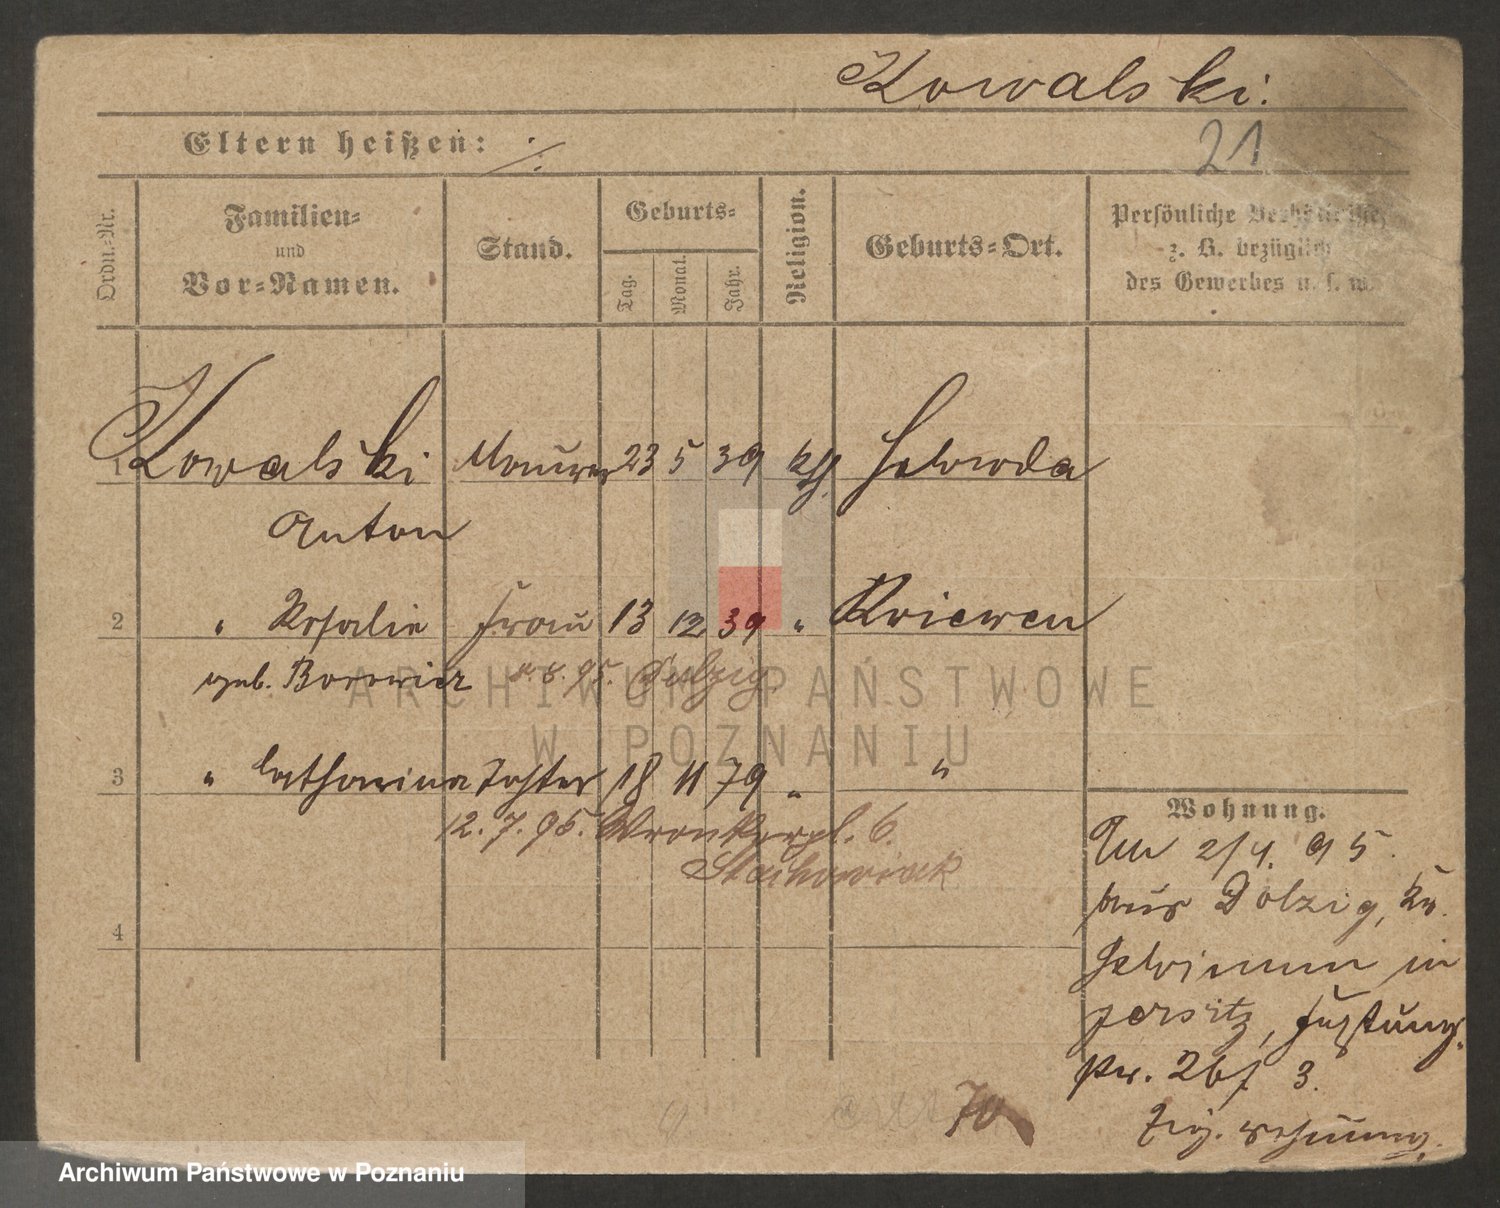 Kowalski.
Eltern heißen: ./.
21
Ordn.-Nr.
Familien-
und
Vor-Namen.
Stand.
Geburts-
Tag.
Monat.
Jahr.
Religion.
Geburts-Ort.
Persönliche Verhältnisse,
z. B. bezüglich
des Gewerbes u. s. w.
1 Kowalski Maurer 23 5 39 kth.
Anton
2 " Rosalie Frau 13 12 39 " Kriewen
geb. Borowicz 95. Dolzig
3 " Catharina Tochter 18 11 79 " "
12. 7. 95. Wronkerpl. 6.
Stachowiak
4
Wohnung.
Am 2/4. 95.
aus Dolzig, Kr.
Schrimm in
Jersitz,
3.
Wohnung.
70
ARCHIWUM PAŃSTWOWE
W POZNANIU
Archiwum Państwowe w Poznaniu